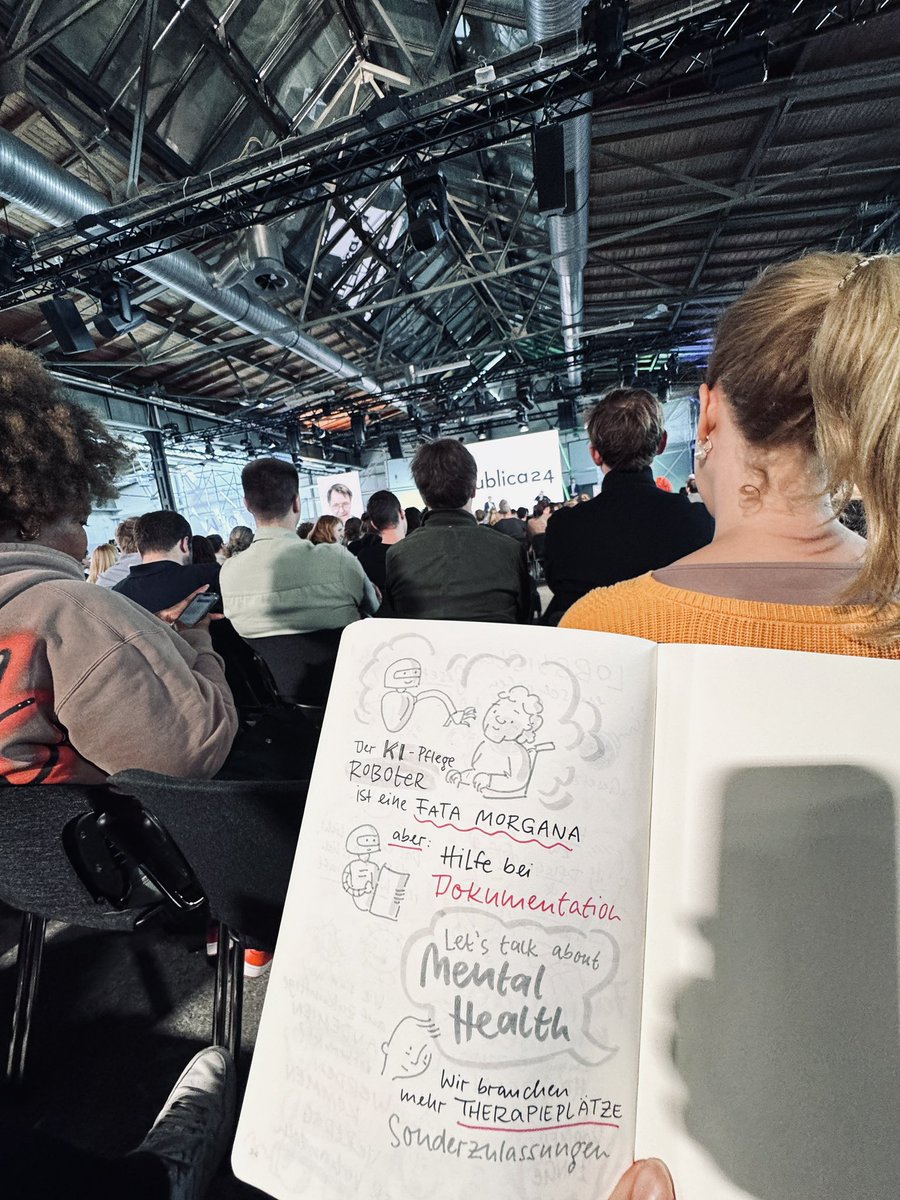 ublica24
Der KI-Pflege
ROBOTER
ist eine FATA MORGANA
aber: Hilfe bei
Dokumentation
Let's talk about
Mental
Health
Wir brauchen
mehr THERAPIEPLÄTZE
Sonderzulassungen